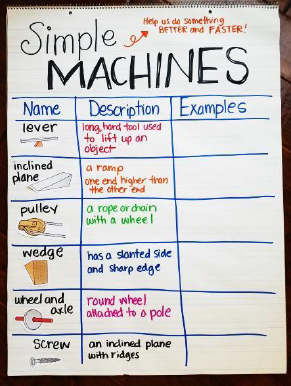 Simple
Help us do something
BETTER and FASTER!
MACHINES
Name Description Examples
lever
long, hard tool used
to lift up an
object
inclined
plane
a ramp
one end higher than
the other end
pulley
a rope or chain
with a wheel
wedge
has a slanted side
and sharp edge
wheel and
axle
round wheel
attached to a pole
screw
an inclined plane
with ridges